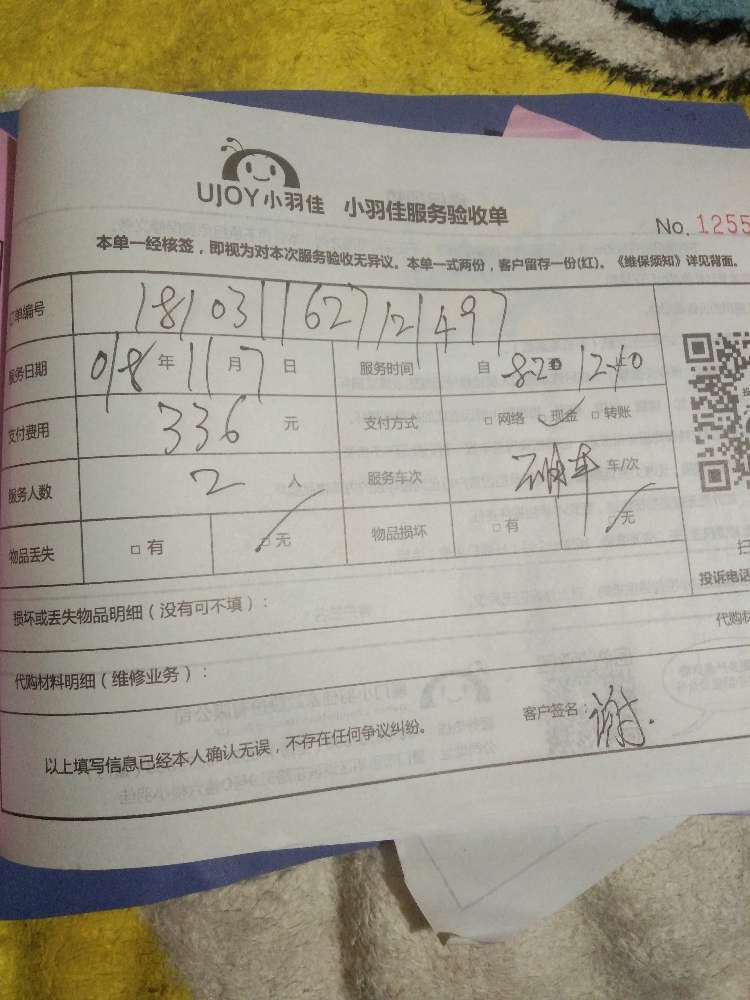 UJOY小羽佳 小羽佳服务验收单
No. 1255
本单一经核签，即视为对本次服务验收无异议。本单一式两份，客户留存一份(红)。《维保须知》详见背面。
订单编号 1810311627121497
服务日期 018年11月7日 服务时间 自 820 1240
支付费用 336 元 支付方式 □网络 现金 □转账
服务人数 2 人 服务车次 车/次
物品丢失 □有 □无 物品损坏 □有 无
扫
投诉电话
损坏或丢失物品明细（没有可不填）：
代购材
代购材料明细（维修业务）：
以上填写信息已经本人确认无误，不存在任何争议纠纷。 客户签名：谢